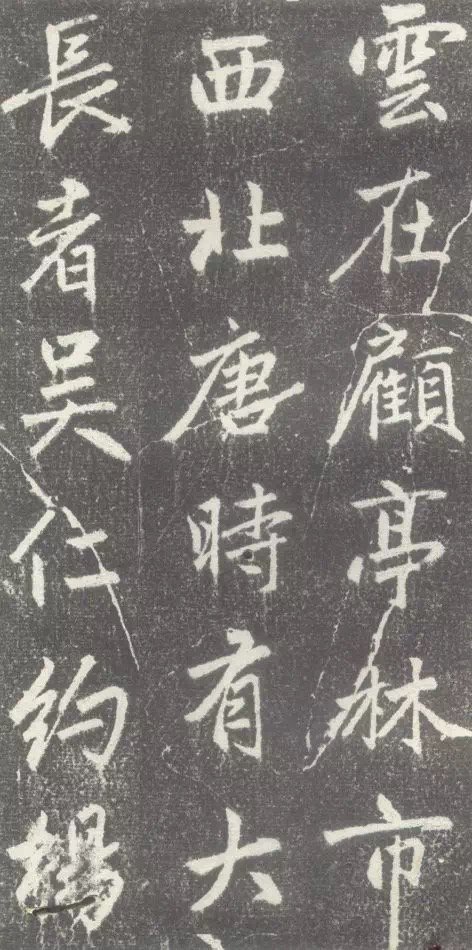 雲在顧亭林市
西北唐時有大
長者吴仁約楊